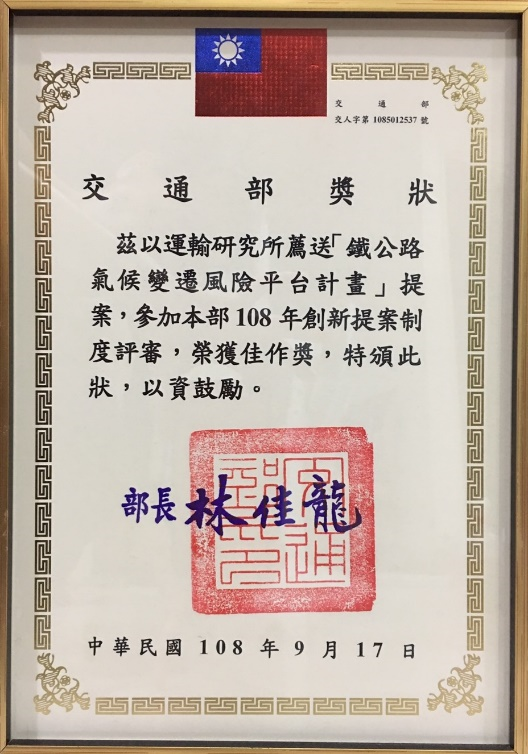 交通部
交人字第 1085012537 號
交通部獎狀
茲以運輸研究所薦送「鐵公路
氣候變遷風險平台計畫」提
案，參加本部 108 年創新提案制
度評審，榮獲佳作獎，特頒此
狀，以資鼓勵。
部長 林佳龍
交通部印
中華民國 108 年 9 月 17 日